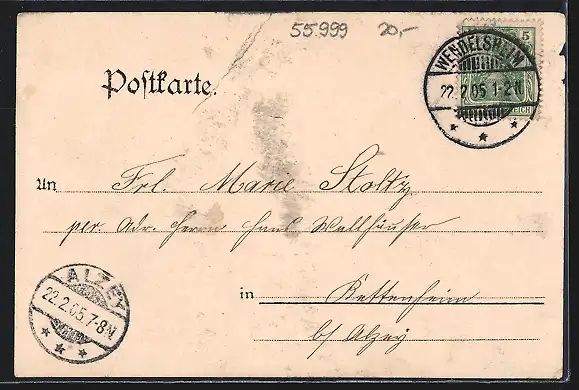 55999 20,-
5
WENDELSHEIM
22.2.05 1-2N
REICH
Postkarte.
An Frl. Marie Stoltz
per. Adr. Herrn Haus Wallhäuser
in Kettenheim
b/ Alzey
ALZEY
22.2.05.7-8N